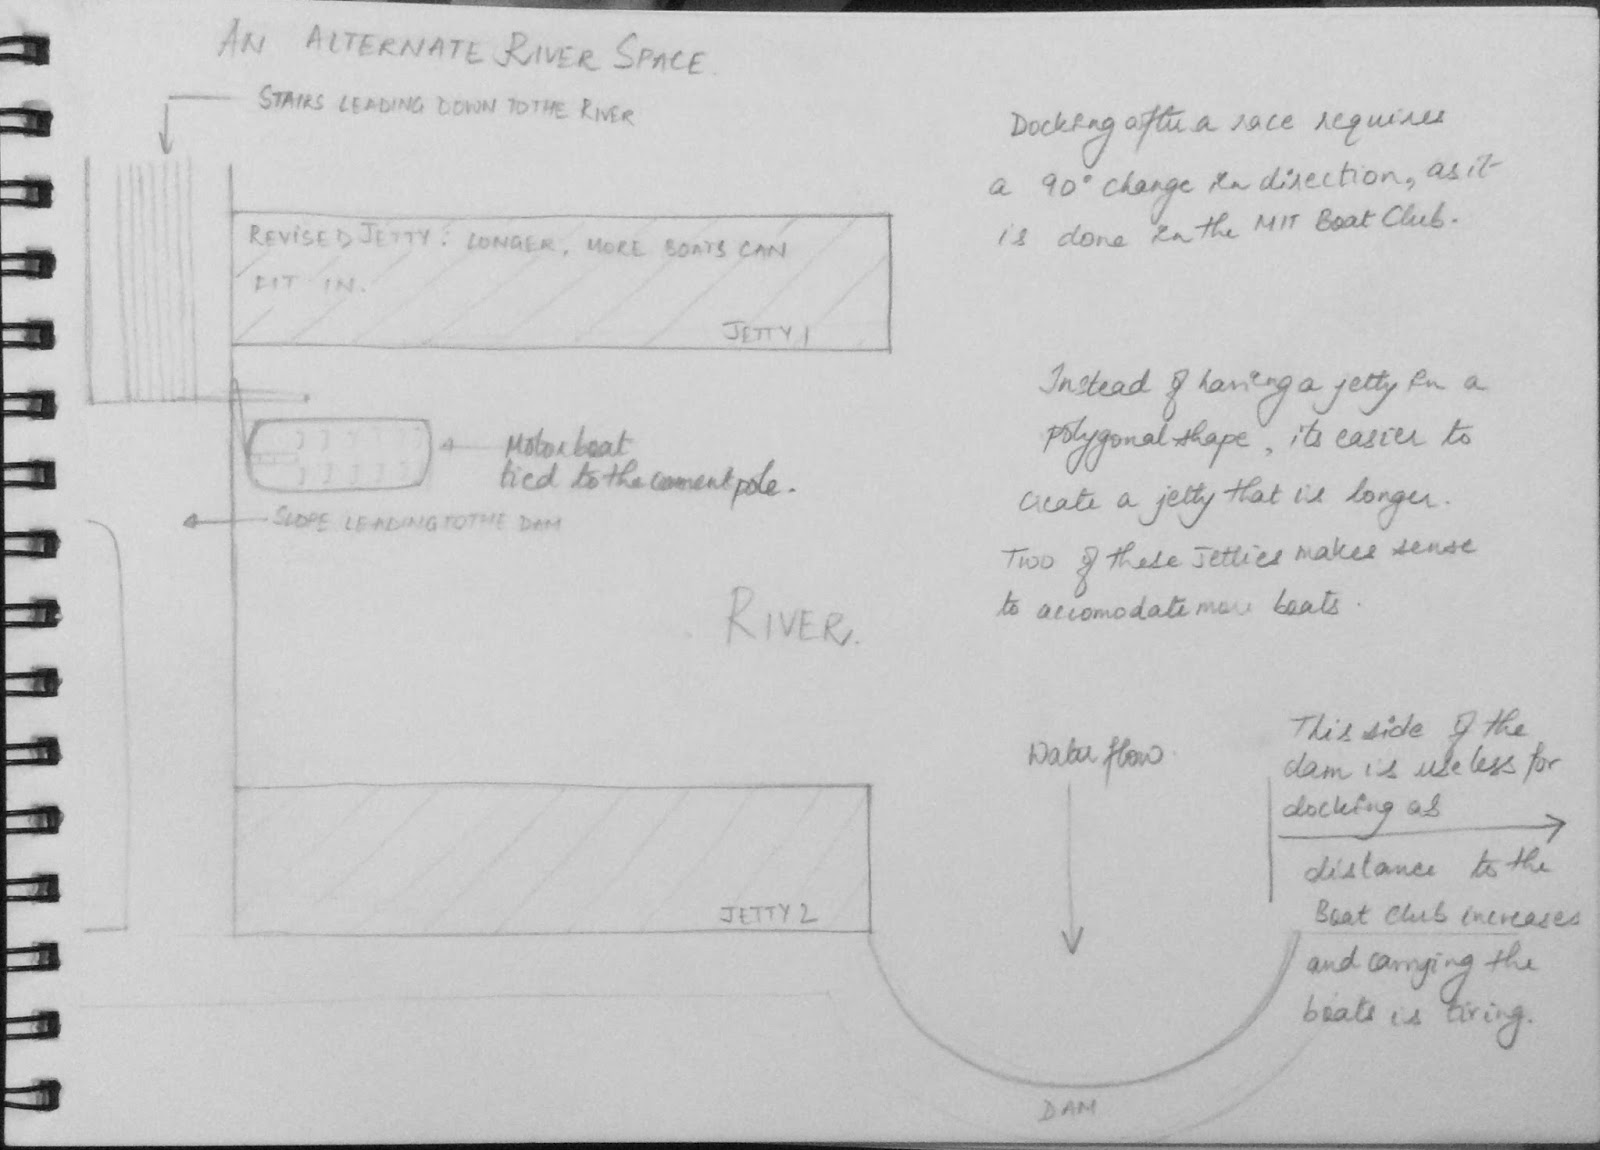 AN ALTERNATE RIVER SPACE.
STAIRS LEADING DOWN TO THE RIVER
REVISED JETTY: LONGER, MORE BOATS CAN
FIT IN.
JETTY 1
Motorboat
tied to the cement pole.
SLOPE LEADING TO THE DAM
RIVER.
JETTY 2
Docking after a race requires
a 90° change in direction, as it
is done in the MIT Boat Club.
Instead of having a jetty in a
polygonal shape, its easier to
create a jetty that is longer.
Two of these Jetties makes sense
to accomodate more boats.
Water flow
This side of the
dam is useless for
docking as
distance to the
Boat Club increases
and carrying the
boats is tiring.
DAM